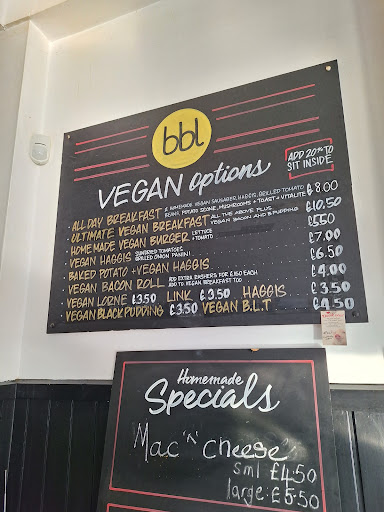 bbl
VEGAN options
ADD 20% TO
SIT INSIDE
ALL DAY BREAKFAST 2 HOMEMADE VEGAN SAUSAGES, HAGGIS, GRILLED TOMATO £8.00
BEANS, POTATO SCONE, MUSHROOMS + TOAST + VITALITE
ULTIMATE VEGAN BREAKFAST ALL THE ABOVE PLUS £10.50
VEGAN BACON AND B.PUDDING
HOMEMADE VEGAN BURGER LETTUCE £5.50
+ TOMATO
VEGAN HAGGIS SUNDRIED TOMATOES, £7.00
GRILLED ONION PANINI
BAKED POTATO + VEGAN HAGGIS £6.50
VEGAN BACON ROLL ADD EXTRA RASHERS FOR £1.50 EACH £4.00
ADD TO VEGAN BREAKFAST TOO
VEGAN LORNE £3.50 LINK £3.50 HAGGIS £3.50
VEGAN BLACK PUDDING £3.50 VEGAN B.L.T £4.50
Homemade
Specials
Mac 'N' cheese
sml £4.50
large: £5.50